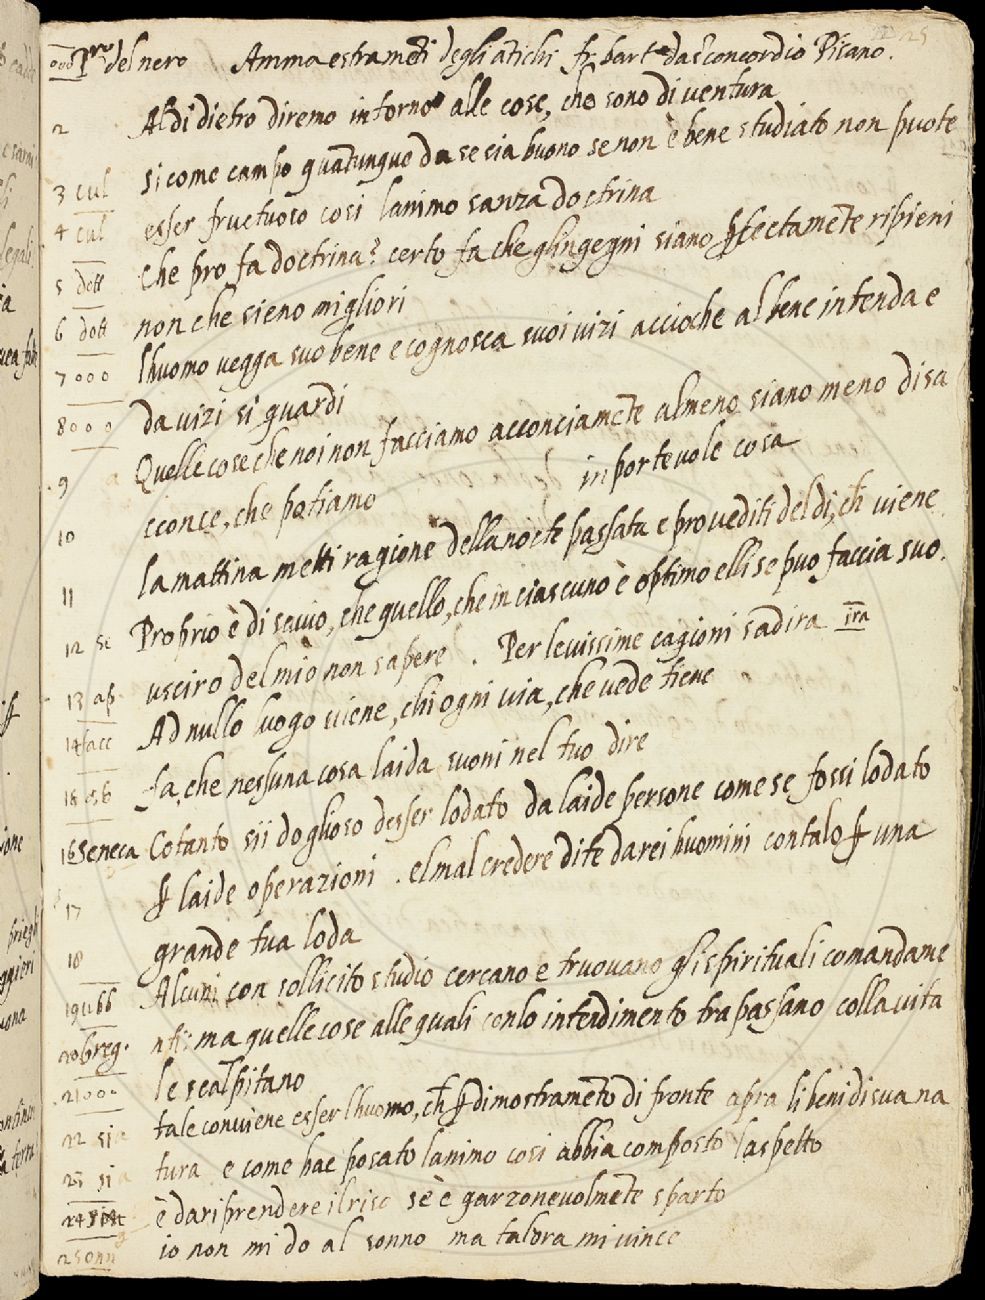 25
P.ro del nero Ammaestrameti degli atichi fr. bart. da sconcordio Pisano.
2 Al di dietro diremo intorno alle cose, che sono di ventura
si come campo quatunque da se sia buono se non è bene studiato non puote
3 cul
4 cul esser fructuoso cosi lanimo sanza doctrina
che pro fa doctrina? certo fa che glingegni siano pfectamete ripieni
5 dott
6 dott non che sieno migliori
7 ooo lhuomo vegga suo bene e cognosca suoi vizi accioche al bene intenda e
8 ooo da vizi si guardi
9 Quelle cose che noi non facciamo acconciamete almeno siano meno disa
10 cconce, che potiamo inportevole cosa
11 la mattina metti ragione della nocte passata e provediti del di, ch viene
12 se Proprio è di savio, che quello, che in ciascuno è optimo elli se puo faccia suo.
13 ap. usciro del mio non sapere . Per levissime cagioni sadira ira
14 facc Ad nullo luogo viene, chi ogni via, che vede tiene
fa, che nessuna cosa laida suoni nel tuo dire
16 Seneca Cotanto sii doglioso desser lodato da laide persone come se fossi lodato
17 p laide operazioni . el mal credere di te da rei huomini contalo p una
18 grande tua loda
19 ubb Alcuni con sollicito studio cercano e truovano gli spirituali comandame
20 breg. nti; ma quelle cose alle quali conlo intedimento trapassano colla vita
21 oo le scalpitano
tale conviene esser lhuomo, ch p dimostrameto di fronte apra li beni di sua na
22 sia
23 sia tura e come hae posato lanimo cosi abbia composto laspetto
24 è da riprendere il riso se è garzonevolmete sparto
25 onn io non mi do al sonno ma talora mi vince